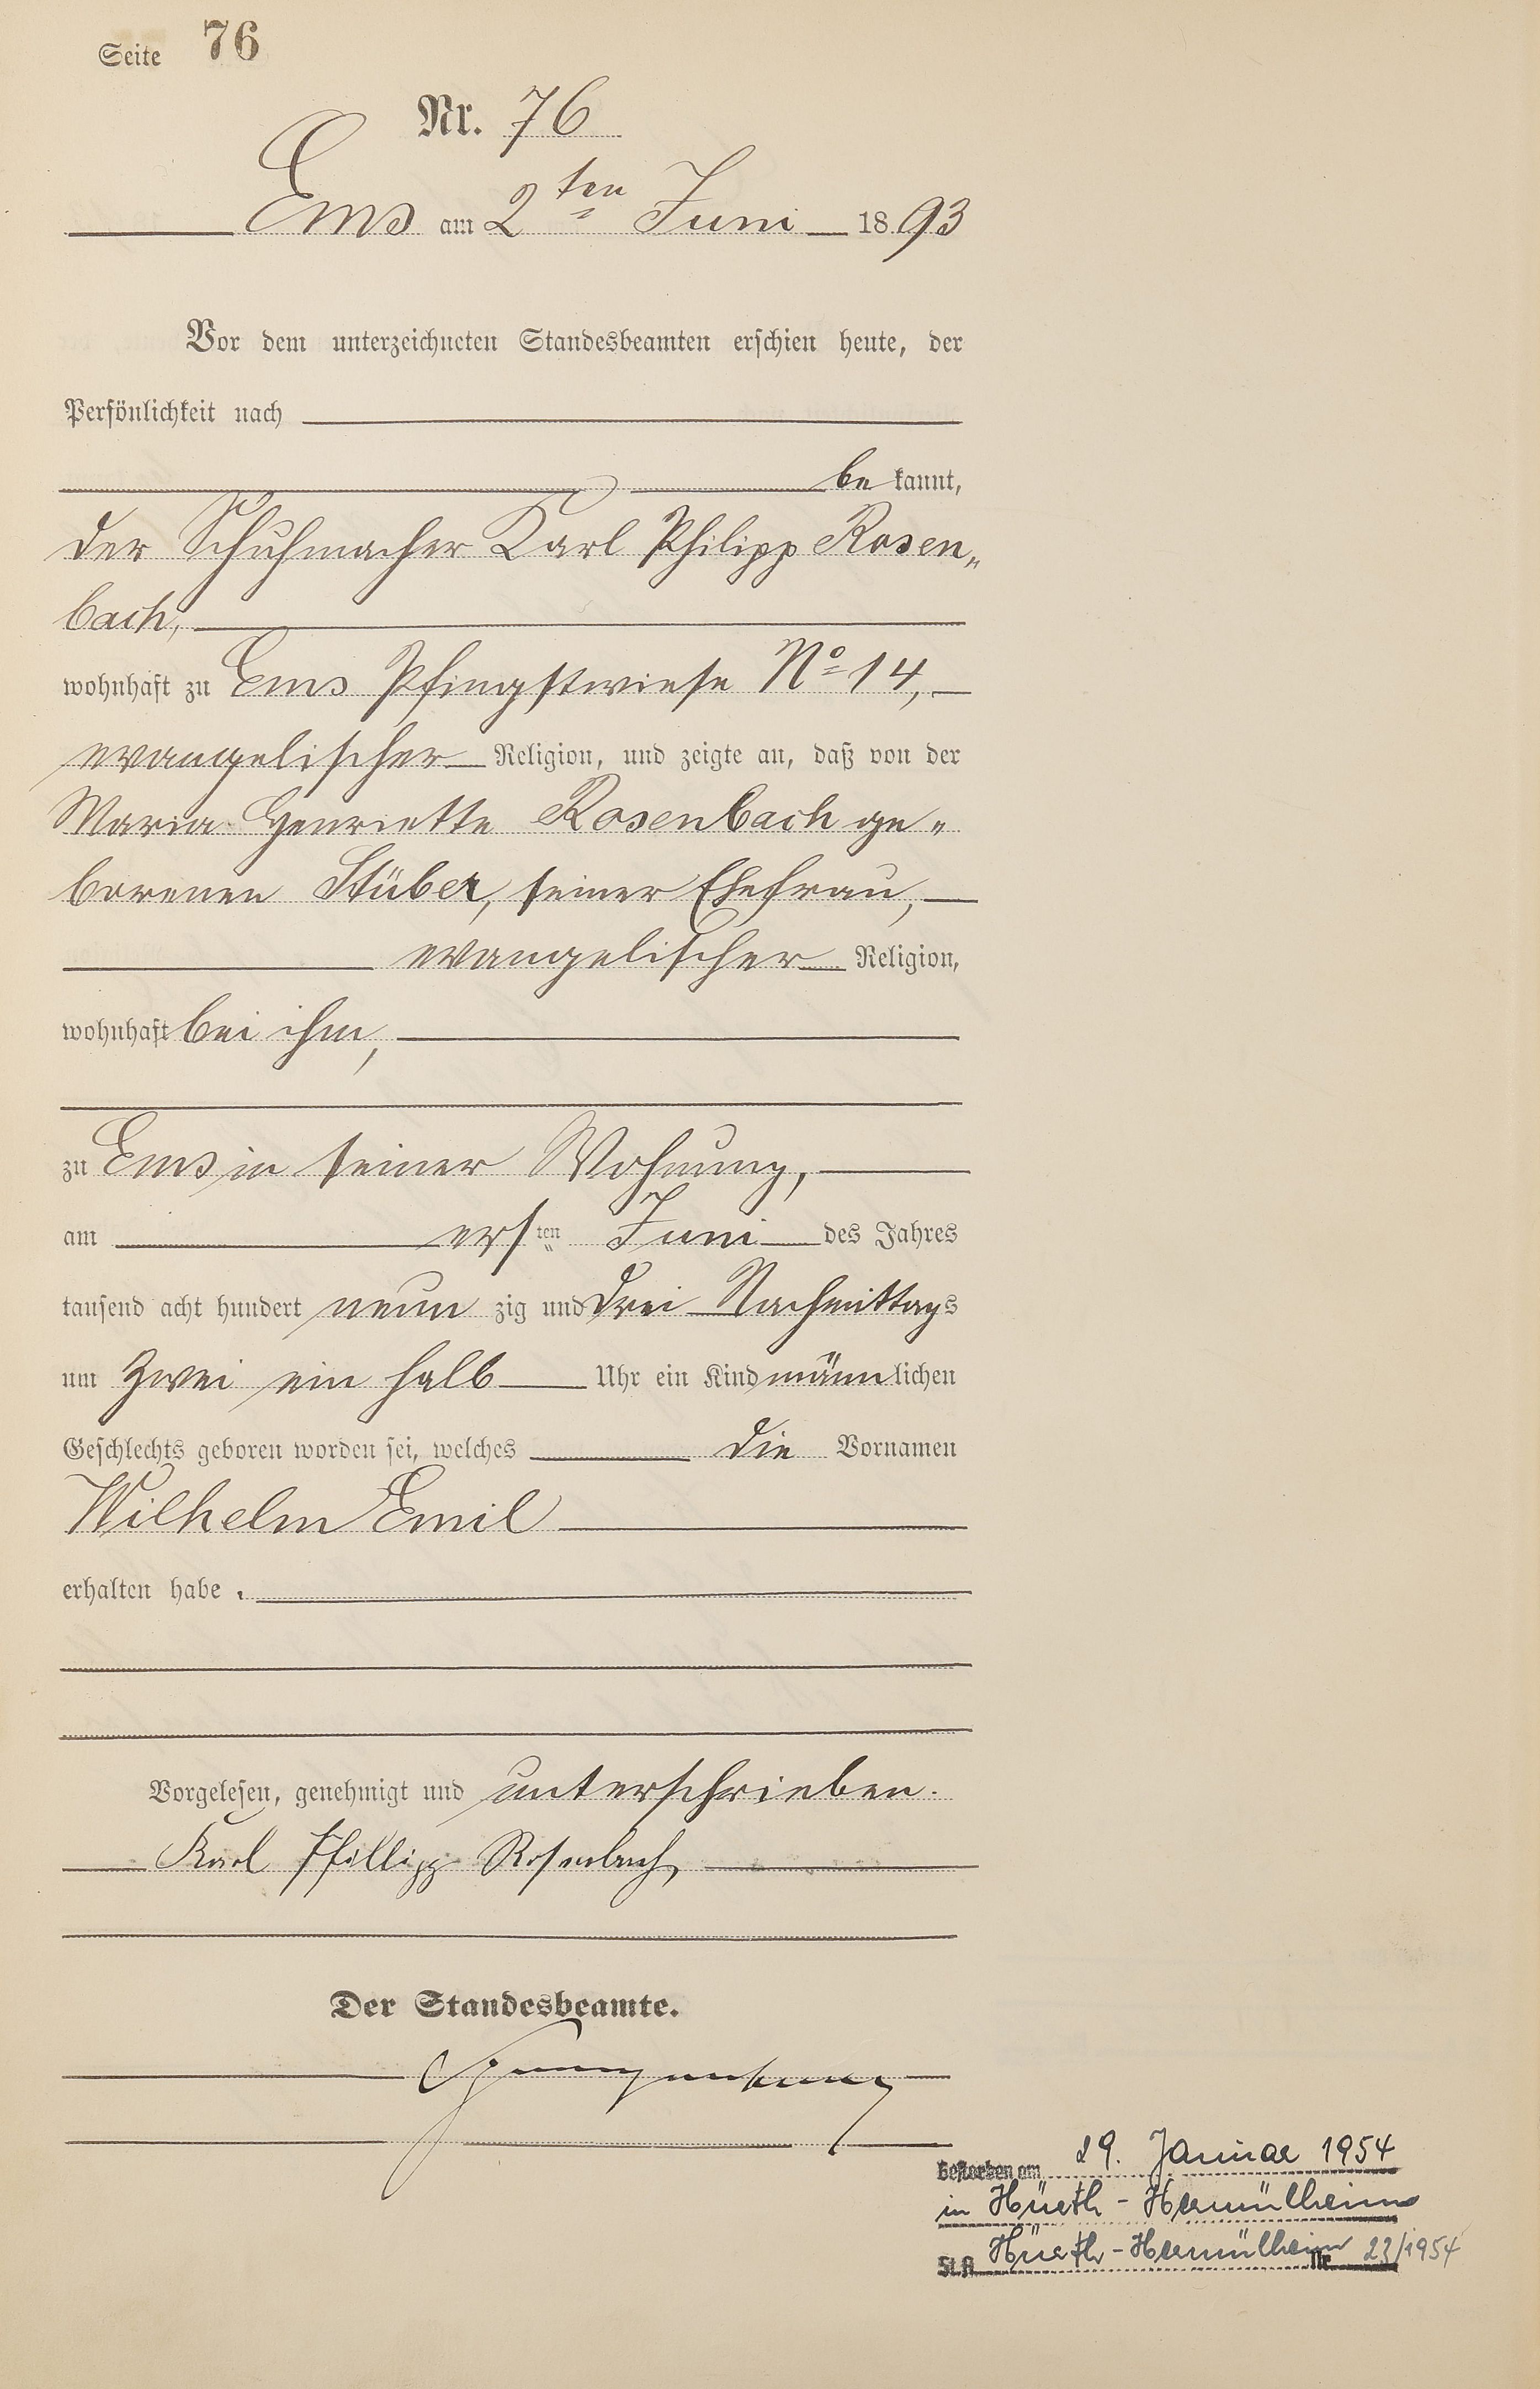 Seite 76
Nr. 76
Ems am 2ten Juni 1893
Vor dem unterzeichneten Standesbeamten erschien heute, der
Persönlichkeit nach
be kannt,
der Schuhmacher Karl Philipp Rosen„
bach,
wohnhaft zu Ems Pfingstwiese No 14,
evangelischer Religion, und zeigte an, daß von der
Maria Henriette Rosenbach ge„
borenen Stüber, seiner Ehefrau,
evangelischer Religion,
wohnhaft bei ihm,
zu Ems in seiner Wohnung,
am ersten Juni des Jahres
tausend acht hundert neun zig und drei Nachmittags
um zwei ein halb Uhr ein Kind männlichen
Geschlechts geboren worden sei, welches die Vornamen
Wilhelm Emil
erhalten habe.
Vorgelesen, genehmigt und unterschrieben.
Karl Phillipp Rosenbach
Der Standesbeamte.
Gestorben am 29. Januar 1954
in Hürth-Hermülheim
St.A. Hürth-Hermülheim Nr. 23/1954